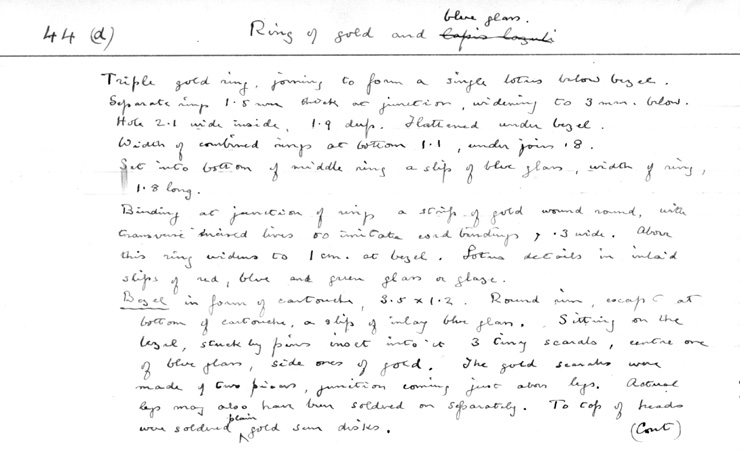 44 (d) Ring of gold and lapis lazuli blue glass.
Triple gold ring, joining to form a single lotus below bezel.
Separate rings 1.5 mm thick at junction, widening to 3 mm. below.
Hole 2.1 wide inside, 1.9 deep. Flattened under bezel.
Width of combined rings at bottom 1.1, under join .8.
Set into bottom of middle ring a slip of blue glass, width of ring,
1.8 long.
Binding at junction of rings a strip of gold wound round, with
transverse incised lines to imitate cord bindings, .3 wide. Above
this ring widens to 1 cm. at bezel. Lotus details in inlaid
slips of red, blue and green glass or glaze.
Bezel in form of cartouche, 3.5 x 1.2. Round rim, except at
bottom of cartouche, a slip of inlay blue glass. Sitting on the
bezel, stuck by pins inset into it 3 tiny scarabs, centre one
of blue glass, side ones of gold. The gold scarabs were
made of two pieces, junction coming just above legs. Actual
legs may also have been soldered on separately. To top of heads
were soldered plain gold sun disks.
(Cont)